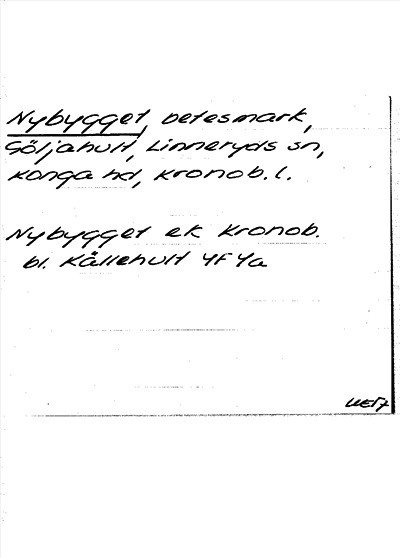 Nybygget, betesmark,
Göljahult, Linneryds sn,
Konga hd, Kronob. l.
Nybygget ek Kronob.
bl. Källehult 4F4a